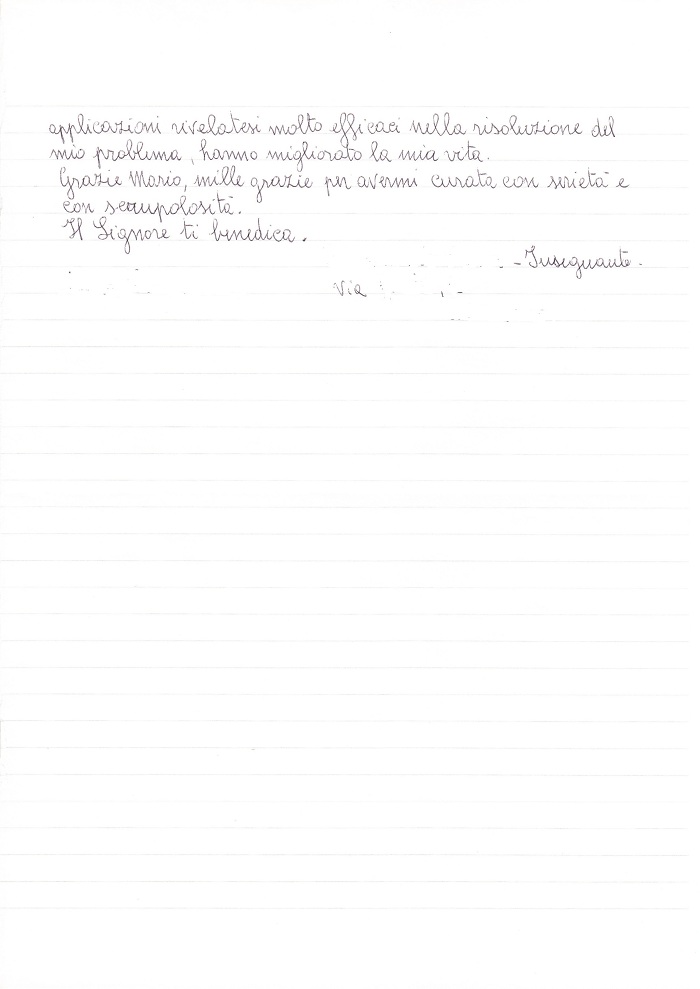 applicazioni rivelatesi molto efficaci nella risoluzione del
mio problema, hanno migliorato la mia vita.
Grazie Mario, mille grazie per avermi curata con serietà e
con scrupolosità.
Il Signore ti benedica.
- Insegnante -
Via